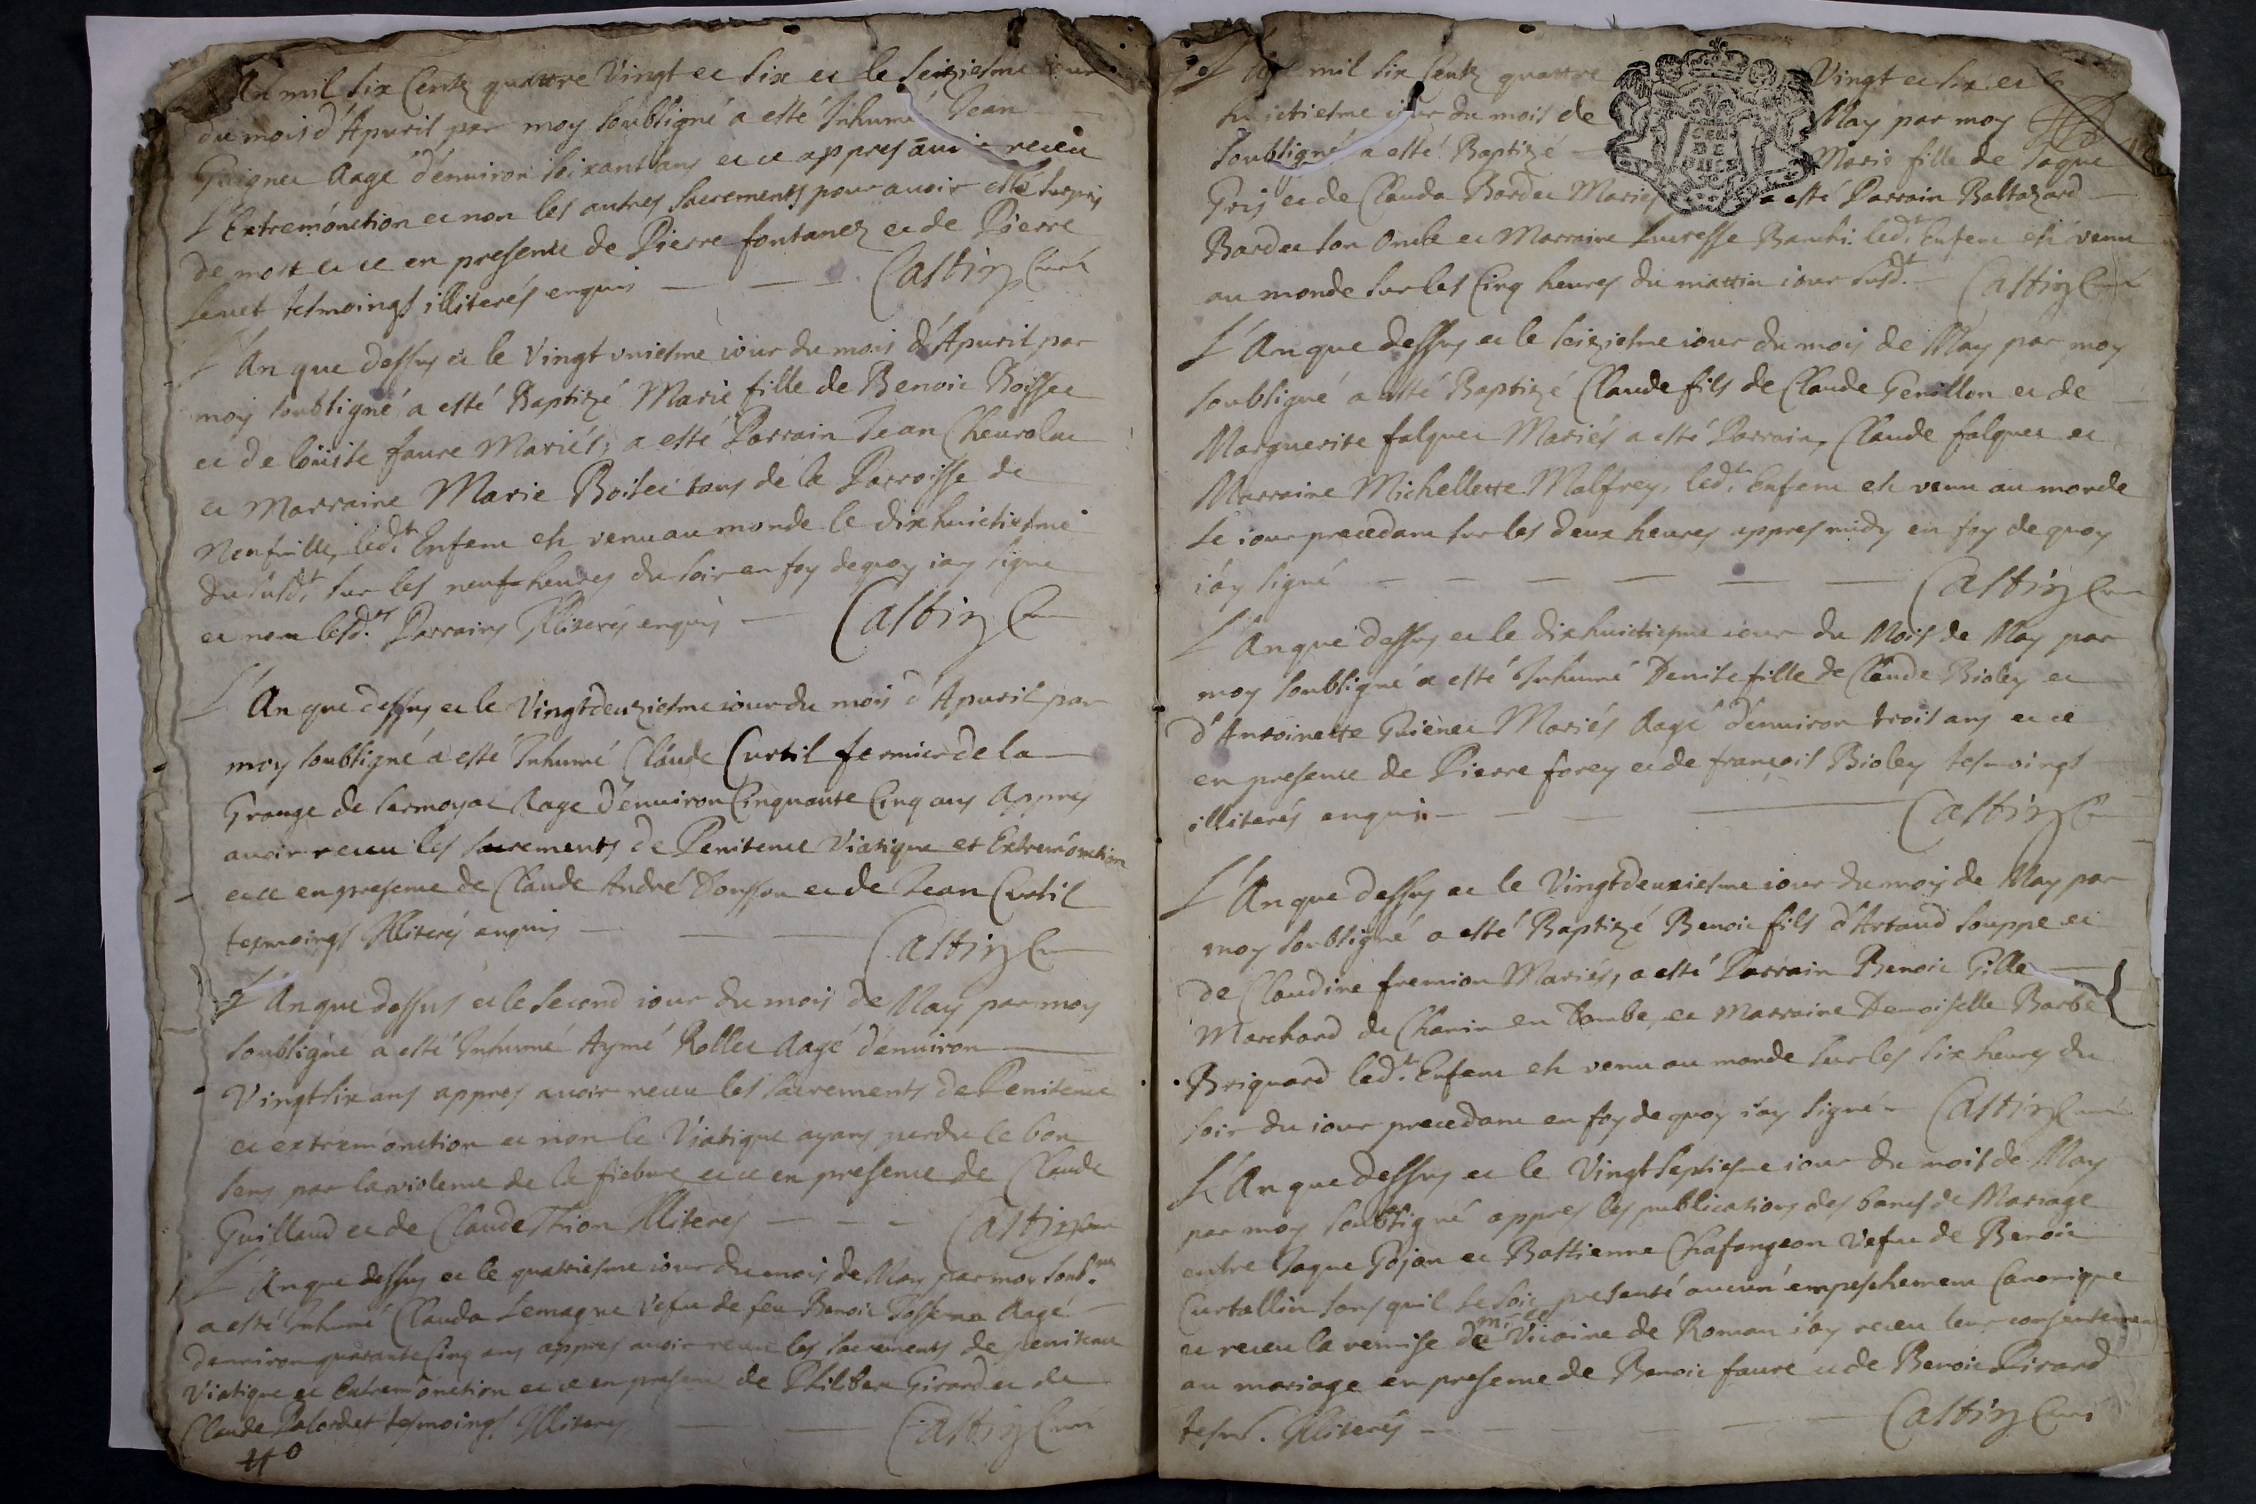 An mil six Centz quattre Vingt et six et le seiziesme iour
du mois d'Apuril par moy soubsigné a esté Inhumé Jean
Guignet Aagé d'enuiron soixant ans et ce appres auoir receu
L'Extremónction et non les autres Sacrements pour auoir esté surpris
de mort et ce en presence de Pierre fontanez et de Pierre
tesmoings illiterés enquis — — — Castin Curé
L'An que dessus et le Vingt vniesme iour du mois d'Apuril par
moy soubsigné a esté Baptizé Marie fille de Benoit Boisset
et de loüise faure Mariés, a esté Parrain Jean Cheurolat
et Marraine Marie Boiset tous de la Parroisse de
Neufuille, led.t Enfent est venu au monde le dixhuictiesme
du susd.t sur les neuf heures du soir en foy de quoy iay signe
et non lesd.ts Parrains Illiterés enquis — Castin Cure
L'An que dessus et le Vingtdeuziesme iour du mois d'Apuril par
moy soubsigné a esté Inhumé Claude Curtil fermier de la
Grange de Sermoyat Aage d'enuiron Cinquante Cinq ans Appres
auoir receu les sacrements de Penitence Viatique et Extremónction
et ce en presence de Claude André Donsson et de Jean Curtil
tesmoings Illiterés enquis — — — Castin Cure
L'An que dessus et le Second iour du mois de May par moy
soubsigné a esté Inhumé Aymé Rollet Aagé d'enuiron
Vingtsix ans appres auoir receu les sacrements de Penitence
et extremónction et non le Viatique ayant perdu le bon
sens par la violence de la fiebure et ce en presence de Claude
Guillaud et de Claude Thion Illiterés — — — Castin Cure
L'An que dessus et le quatriesme iour du mois de May par moy soub.né
a esté Inhumé Clauda Lemagne Vefue de feu Benoit Aagé
d'enuiron quarante Cinq ans appres auoir receu les sacrements de penitence
Viatique et Extremónction et ce en presence de Philibert Girard et de
Claude Palordet tesmoings Illiterés — — Castin Curé
L'An mil six Centz quattre Vingt et six et le
huictiesme iour du mois de May par moy
soubsigné a esté Baptizé — Marie fille de Jaque
Gris et de Clauda Bardet Mariés a esté Parrain Baltazard
Bardet son Oncle et Marraine Lucresse Banchi led.t Enfent est venu
au monde sur les Cinq heures du mattin iour susd.t — Castin Curé
L'An que dessus et le seiziesme iour du mois de May par moy
soubsigné a esté Baptizé Claude fils de Claude Genillon et de
Marguerite falquet Mariés a esté Parrain, Claude falquet et
Marraine Michellette Malfrey, led.t Enfent est venu au monde
le iour precedant sur les deux heures appres midy en foy de quoy
i'ay signé — — — — — — Castin Cure
L'An que dessus et le dixhuictiesme iour du Mois de May par
moy soubsigné a esté Inhumé Denise fille de Claude Bioley et
d'Antoinette Guienet Mariés Aagé d'enuiron trois ans et ce
en presence de Pierre forey et de françois Bioley tesmoings
illiterés enquis — — — Castin Cé
L'An que dessus et le Vingtdeuxiesme iour du mois de May par
moy soubsigné a esté Baptizé Benoit fils d'Artaud Souppe et
de Claudine fremion Mariés, a esté Parrain Benoit Gille
Marchand de Chanin en Dombe, et Marraine Demoiselle Barbe
Briquard led.t Enfent est venu au monde sur les six heures du
soir du iour precedant en foy de quoy i'ay signé — Castin Curé
L'An que dessus et le Vingtseptiesme iour du mois de May
par moy soubsigné appres les publications des bancs de Mariage
entre Jaque Gojon et Bastienne Chafangeon Vefue de Benoit
Curtallin sans quil se soit presenté aucun empeschement Canonique
et receu la remise de m.r le Vicaire de Roman i'ay receu leur consentement
au mariage en presence de Benoit faure et de Benoit Pirard
tesm.s Illiterés — — — — — Castin Curé